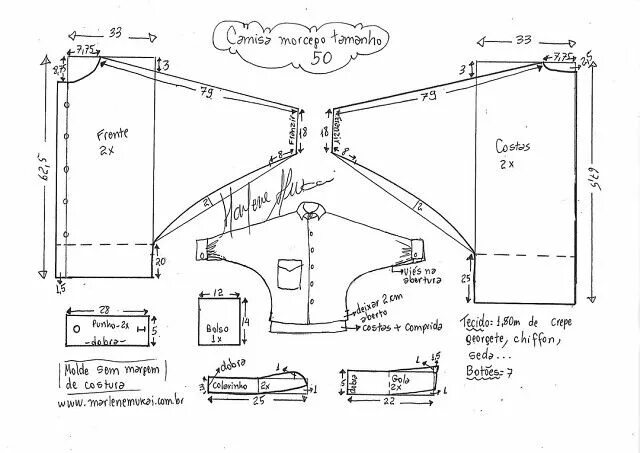 Camisa morcego tamanho
50
33
7,75
8,75
3
79
Frente
2x
62,5
Franzir
18
8
2
20
1,5
33
7,75
2,5
3
79
Costas
2x
67,5
Franzir
18
8
2
25
Marlene Mukai
28
Punho-2x
-dobra-
5
12
Bolso
1x
14
viés na
abertura
deixar 2cm
aberto
costas + comprida
Tecido= 1,80m de crepe
georgete, chiffon,
seda...
Botões=7
Molde sem margem
de costura
www.marlenemukai.com.br
dobra
Colarinho
2x
3
1
1
25
dobra
Gola
2x
5
1
1,5
1
22